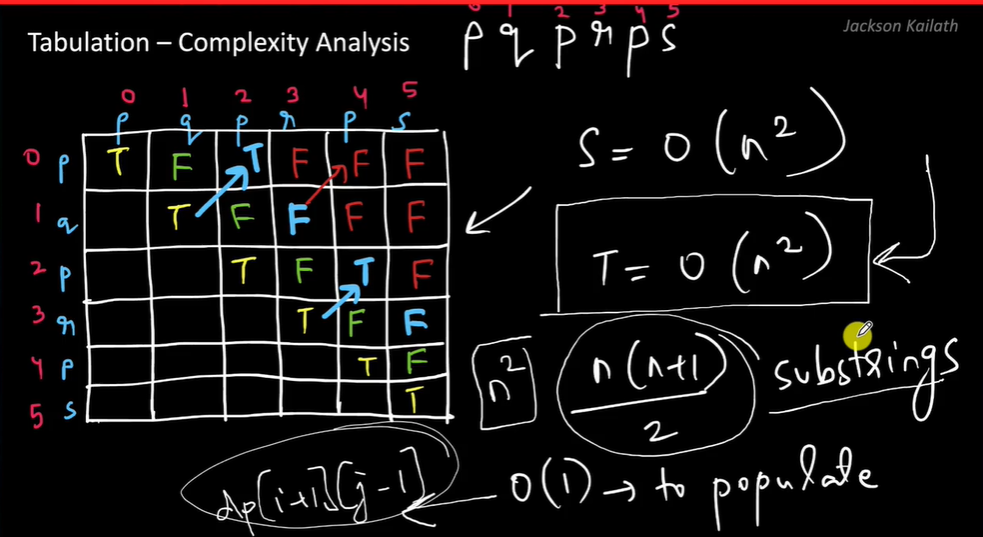 0 1 2 3 4 5
Tabulation – Complexity Analysis
p q p r p s
Jackson Kailath
0 1 2 3 4 5
p q p r p s
0 p T F T F F F
1 q T F F F F
2 p T F T F
3 r T F F
4 p T F
5 s T
S = O(n²)
T = O(n²)
n²
n(n+1)
2
substrings
dp[i+1][j-1]
O(1) → to populate